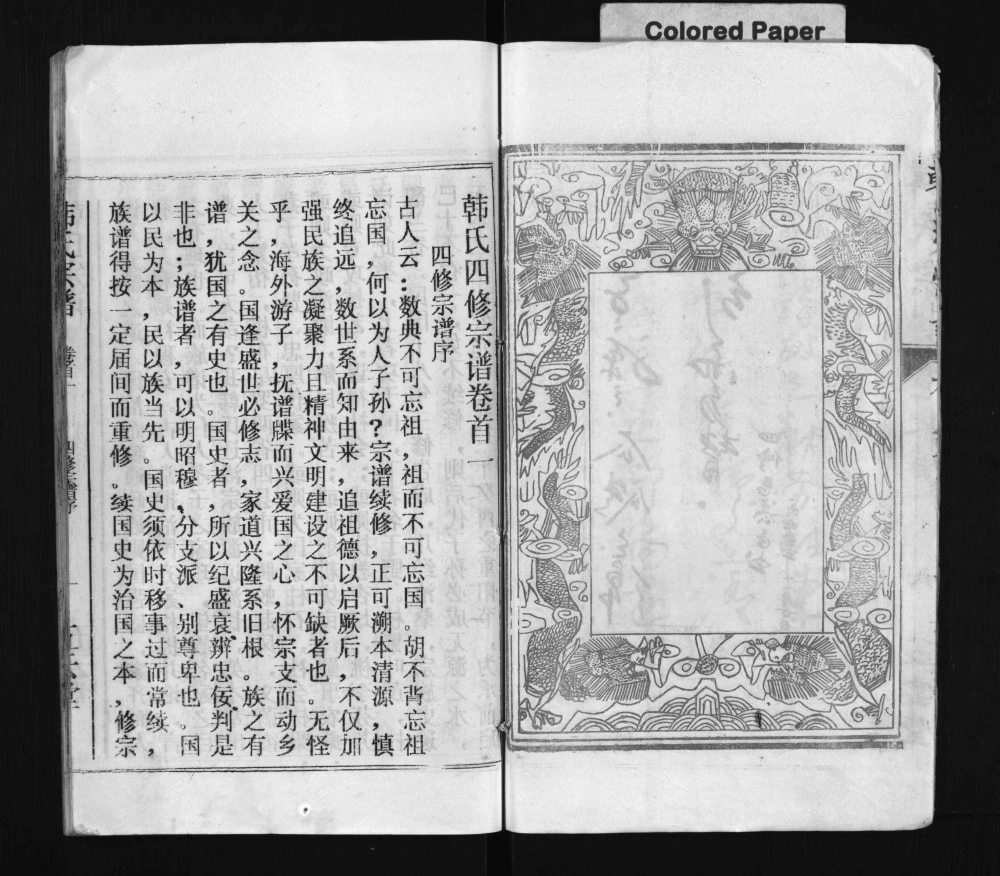 Colored Paper
韩氏四修宗谱卷首一
四修宗谱序
古人云：数典不可忘祖，祖而不可忘国。胡不背忘祖
忘国，何以为人子孙？宗谱续修，正可溯本清源，慎
终追远，数世系而知由来，追祖德以启厥后，不仅加
强民族之凝聚力且精神文明建设之不可缺者也。无怪
乎，海外游子，抚谱牒而兴爱国之心，怀宗支而动乡
关之念。国逢盛世必修志，家道兴隆系旧根。族之有
谱，犹国之有史也。国史者，所以纪盛衰、辨忠佞、判是
非也；族谱者，可以明昭穆、分支派、别尊卑也。国
以民为本，民以族当先。国史须依时移事过而常续，
族谱得按一定届间而重修。续国史为治国之本，修宗
韩氏宗谱
卷首一
四修宗谱序